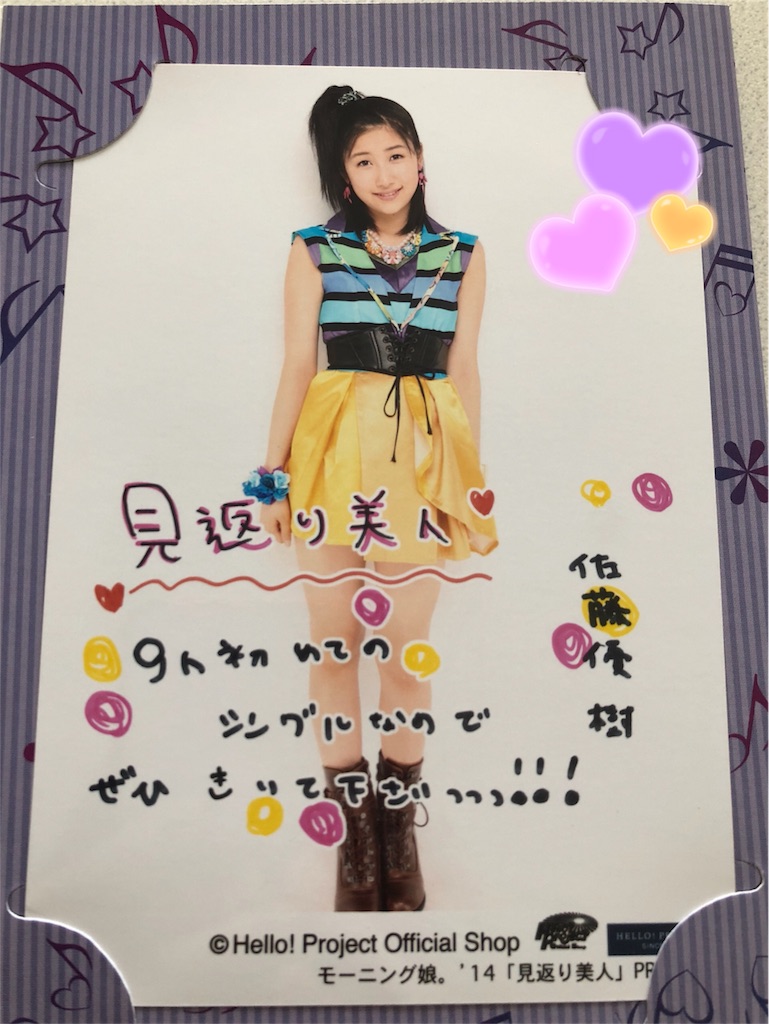 見返り美人
9人初めての
シングルなので
ぜひ きいて下さいっっっ!!!
佐藤優樹
©Hello! Project Official Shop
HELLO! PR
SINC
モーニング娘。'14「見返り美人」PR